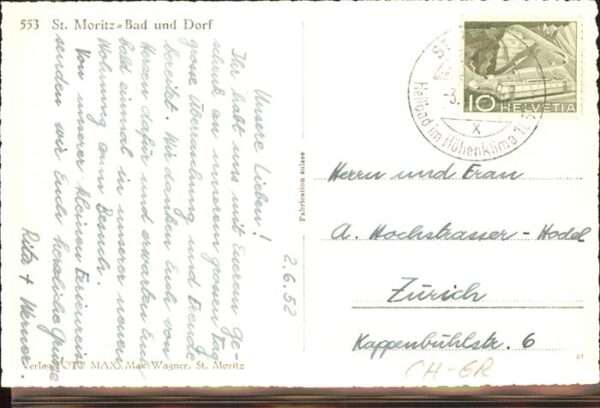 553 St. Moritz-Bad und Dorf
Unsere Lieben!
Ihr habt uns mit Eurem Ge-
schenk an unserem grossen Tag
grosse Überraschung und Freude
bereitet. Wir danken Euch von
Herzen dafür und erwarten Euch
bald einmal in unserer neuen
Wohnung zum Besuch.
Von unserer kleinen Ferienreise
senden wir Euch herzliche Grüsse
Rita + Werner
2.6.52
Verlag FOTO MAX, Max Wagner, St. Moritz
Fabrication suisse
10 HELVETIA
Heilbad im Höhenklima
X
Herrn und Frau
A. Hochstrasser-Hodel
Zürich
Kappenbühlstr. 6
CH-GR